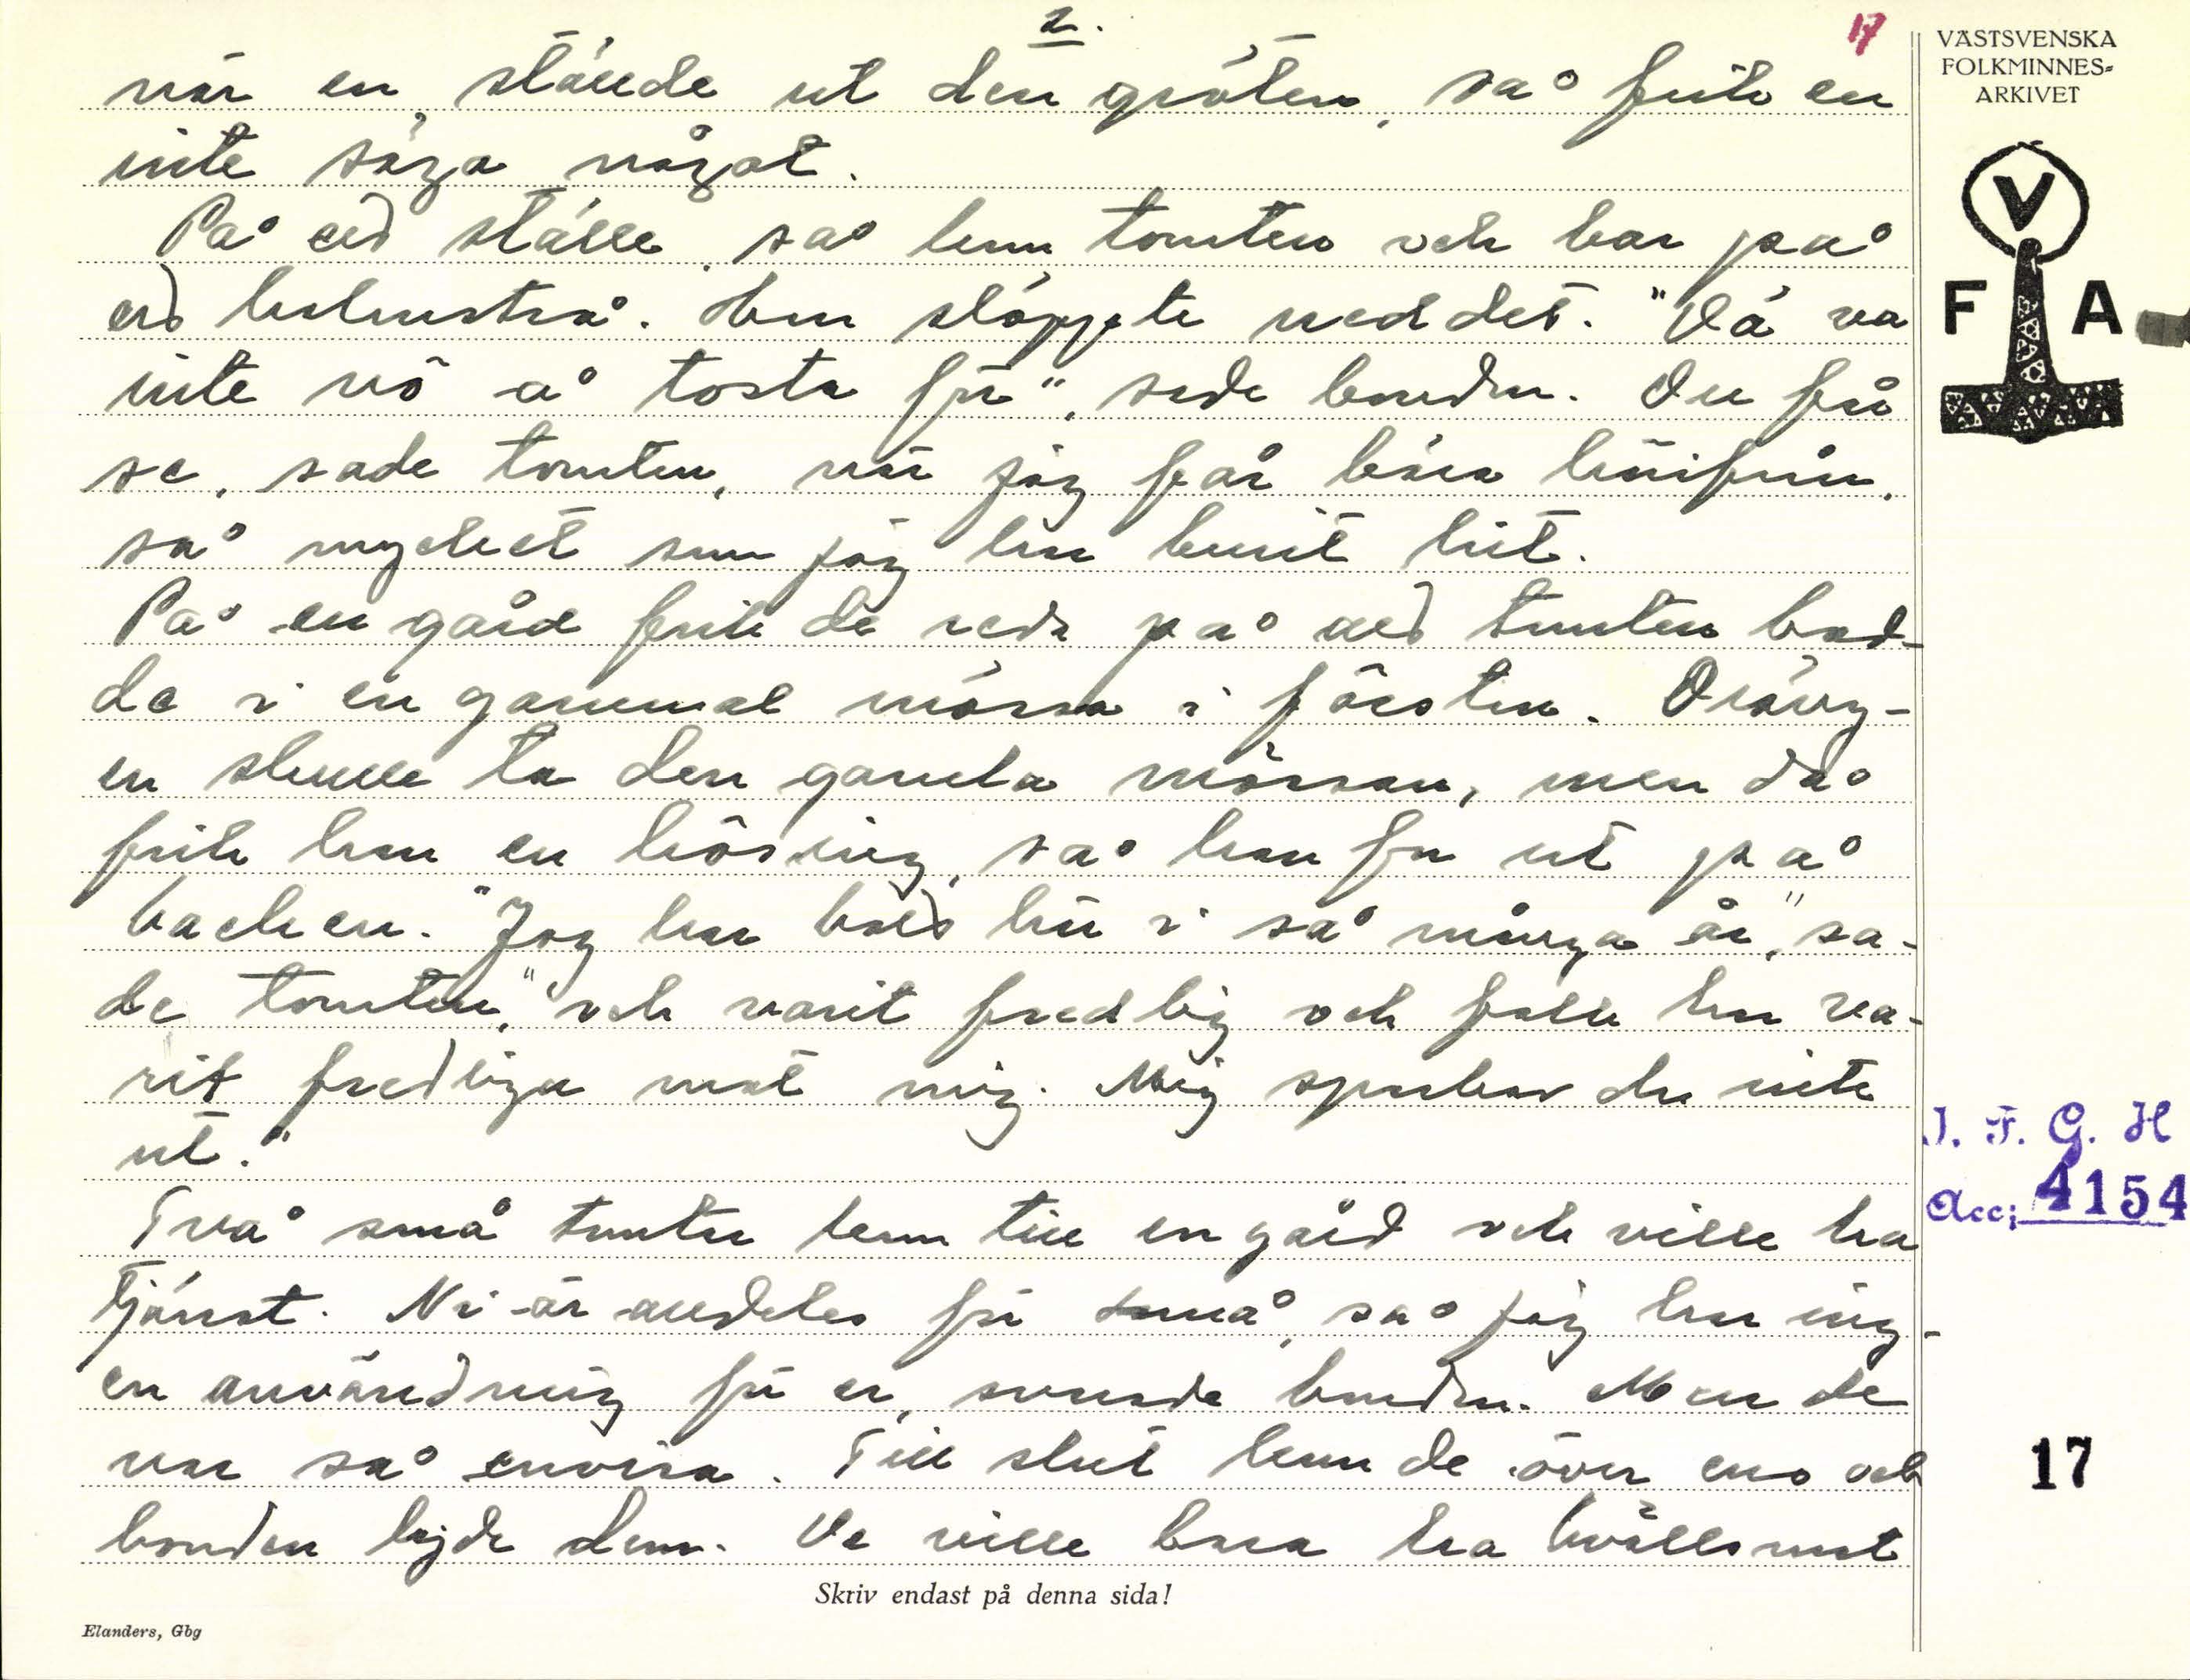 2.
17
när en ställde ut den gröten, så fick en
inte säga något.
På ett ställe, så kom tomten och bar på
ett halmstrå. Han släppte ned det. "Dä va
inte nô å tosta för", sade bonden. Du får
se, sade tomten, när jag får bära härifrån,
så mycket som jag har burit hit.
På en gård fick de reda på att tomten bod-
de i en gammal mössa i förstun. Dräng-
en skulle ta den gamla mössan, men då
fick han en hörsing, så han for ut på
backen. "Jag har bott här i så många år," sa-
de tomten, "och varit fredlig och folk har va-
rit fredliga mot mig. Mig sparkar du inte
ut."
Två små tomtar kom till en gård och ville ha
tjänst. Ni är alldeles för små, så jag har ing-
en användning för er, svarade bonden. Men de
var så envisa. Till slut kom de över ens och
bonden lejde dem. De ville bara ha kvällsmat
Skriv endast på denna sida!
Elanders, Gbg
VÄSTSVENSKA
FOLKMINNES-
ARKIVET
V
F A
I. F. G. H
Acc: 4154
17